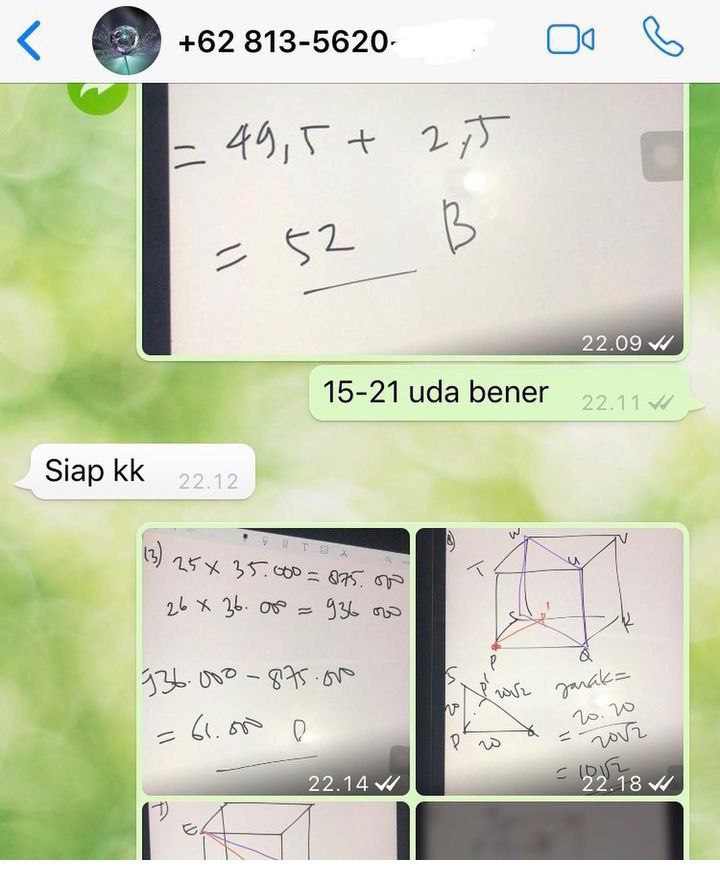 +62 813-5620-
= 49,5 + 2,5
= 52 B
22.09
15-21 uda bener
22.11
Siap kk
22.12
13) 25 x 35.000 = 875.000
26 x 36.000 = 936 000
936.000 - 875.000
= 61.000 D
22.14
W V
T U
S P' R
P Q
S
P' 20√2
20
P 20 Q
jarak =
20.20
= 20√2
= 10√2
22.18
7)
E